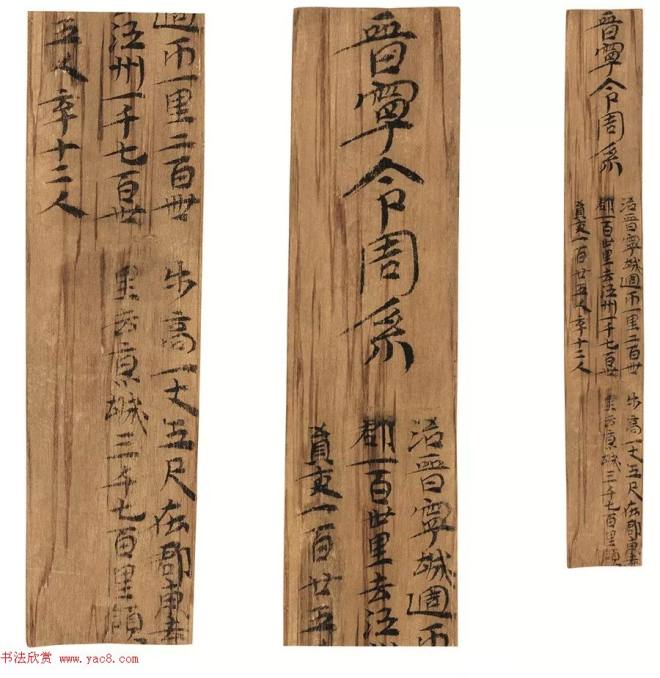 晉寧令周系
治晉寧城週帀一里二百卌
郡一百卅里去江州一千七百卅
員吏一百廿五人卒十二人
步高一丈五尺在郡東去
里去京城三千七百里領
晉寧令周系
治晉寧城週帀
郡一百卅里去江州
員吏一百廿五
週帀一里二百卌
江州一千七百卅
五人卒十二人
步高一丈五尺在郡東去
里去京城三千七百里領
书法欣赏 www.yac8.com